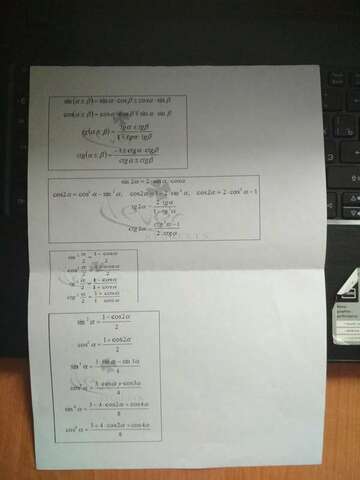 sin(α ± β) = sin α · cos β ± cos α · sin β
cos(α ± β) = cos α · cos β ∓ sin α · sin β
tg(α ± β) = (tg α ± tg β) / (1 ∓ tg α · tg β)
ctg(α ± β) = (-1 ± ctg α · ctg β) / (ctg α ± ctg β)
sin 2α = 2 · sin α · cos α
cos 2α = cos² α − sin² α, cos 2α = 1 − 2 · sin² α, cos 2α = 2 · cos² α − 1
tg 2α = (2 · tg α) / (1 − tg² α)
ctg 2α = (ctg² α − 1) / (2 · ctg α)
sin² α/2 = (1 − cos α) / 2
cos² α/2 = (1 + cos α) / 2
tg² α/2 = (1 − cos α) / (1 + cos α)
ctg² α/2 = (1 + cos α) / (1 − cos α)
sin² α = (1 − cos 2α) / 2
cos² α = (1 + cos 2α) / 2
sin³ α = (3 · sin α − sin 3α) / 4
cos³ α = (3 · cos α + cos 3α) / 4
sin⁴ α = (3 − 4 · cos 2α + cos 4α) / 8
cos⁴ α = (3 + 4 · cos 2α + cos 4α) / 8